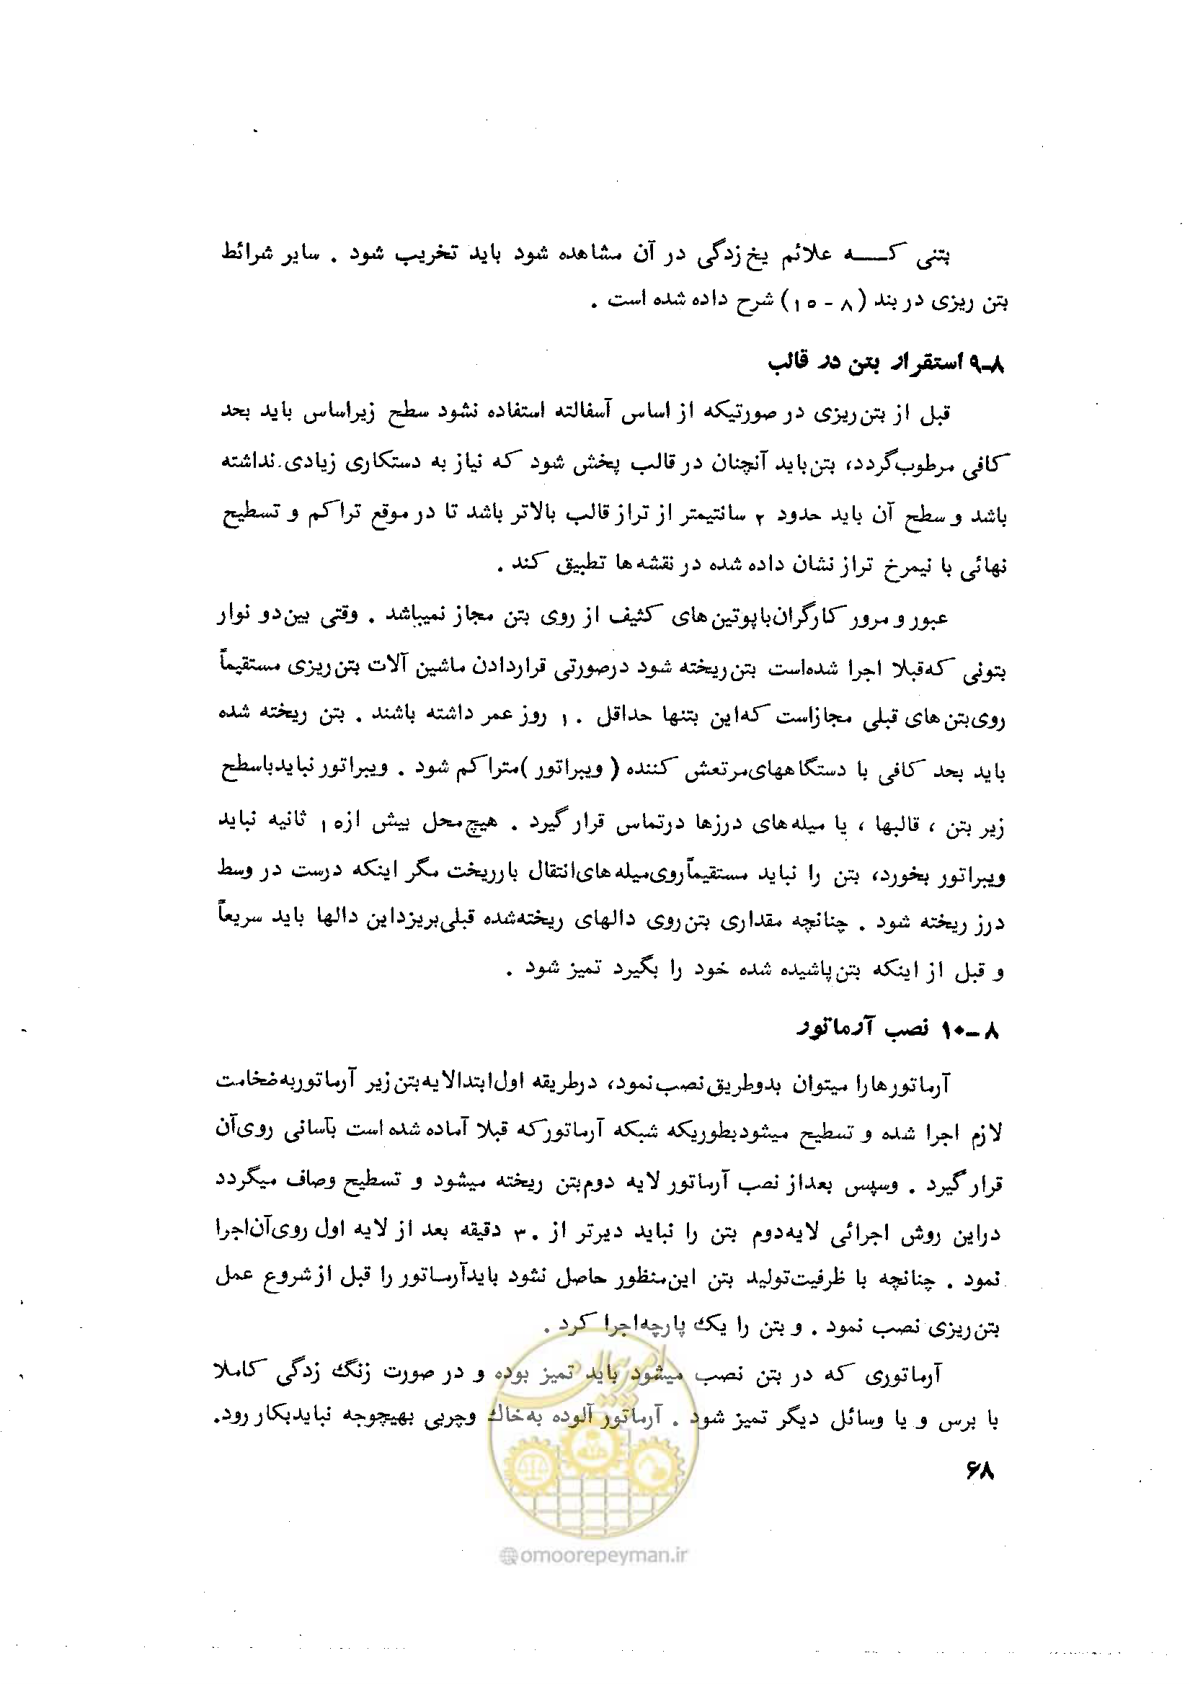 بتنی کـــه علائم یخ زدگی در آن مشاهده شود باید تخریب شود . سایر شرائط
بتن ریزی در بند (۸ - ۱۵) شرح داده شده است .
۸-۹ استقرار بتن در قالب
قبل از بتن‌ریزی در صورتیکه از اساس آسفالته استفاده نشود سطح زیراساس باید بحد
کافی مرطوب‌گردد، بتن‌باید آنچنان در قالب پخش شود که نیاز به دستکاری زیادی نداشته
باشد و سطح آن باید حدود ۲ سانتیمتر از تراز قالب بالاتر باشد تا در موقع تراکم و تسطیح
نهائی با نیمرخ تراز نشان داده شده در نقشه ها تطبیق کند .
عبور و مرور کارگران‌با پوتین های کثیف از روی بتن مجاز نمیباشد . وقتی بین‌دو نوار
بتونی که‌قبلا اجرا شده‌است بتن‌ریخته شود درصورتی قراردادن ماشین آلات بتن‌ریزی مستقیماً
روی‌بتن های قبلی مجازاست که‌این بتنها حداقل ۱۰ روز عمر داشته باشند . بتن ریخته شده
باید بحد کافی با دستگاههای‌مرتعش کننده ( ویبراتور )متراکم شود . ویبراتور نباید‌با‌سطح
زیر بتن ، قالبها ، یا میله‌های درزها درتماس قرار گیرد . هیچ‌محل بیش از۱۵ ثانیه نباید
ویبراتور بخورد، بتن را نباید مستقیماً‌روی‌میله های‌انتقال بار‌ریخت مگر اینکه درست در وسط
درز ریخته شود . چنانچه مقداری بتن‌روی دالهای ریخته‌شده قبلی‌بریزداین دالها باید سریعاً
و قبل از اینکه بتن‌پاشیده شده خود را بگیرد تمیز شود .
۸-۱۰ نصب آرماتور
آرماتورها‌را میتوان بدوطریق‌نصب‌نمود، درطریقه اول‌ابتدا‌لایه‌بتن‌زیر آرماتوربه‌ضخامت
لازم اجرا شده و تسطیح میشودبطوریکه شبکه آرماتورکه قبلا آماده شده است بآسانی روی‌آن
قرار گیرد . وسپس بعداز نصب آرماتور لایه دوم‌بتن ریخته میشود و تسطیح وصاف میگردد
دراین روش اجرائی لایه‌دوم بتن را نباید دیرتر از ۳۰ دقیقه بعد از لایه اول روی‌آن‌اجرا
نمود . چنانچه با ظرفیت‌تولید بتن این‌منظور حاصل نشود بایدآرماتور را قبل از شروع عمل
بتن‌ریزی نصب نمود . و بتن را یک پارچه‌اجرا کرد .
آرماتوری که در بتن نصب میشود باید تمیز بوده و در صورت زنگ زدگی کاملا
با برس و یا وسائل دیگر تمیز شود . آرماتور آلوده به‌خاک وچربی بهیچوجه نباید‌بکار رود.
۶۸
امور پیمان
@omoorepeyman.ir